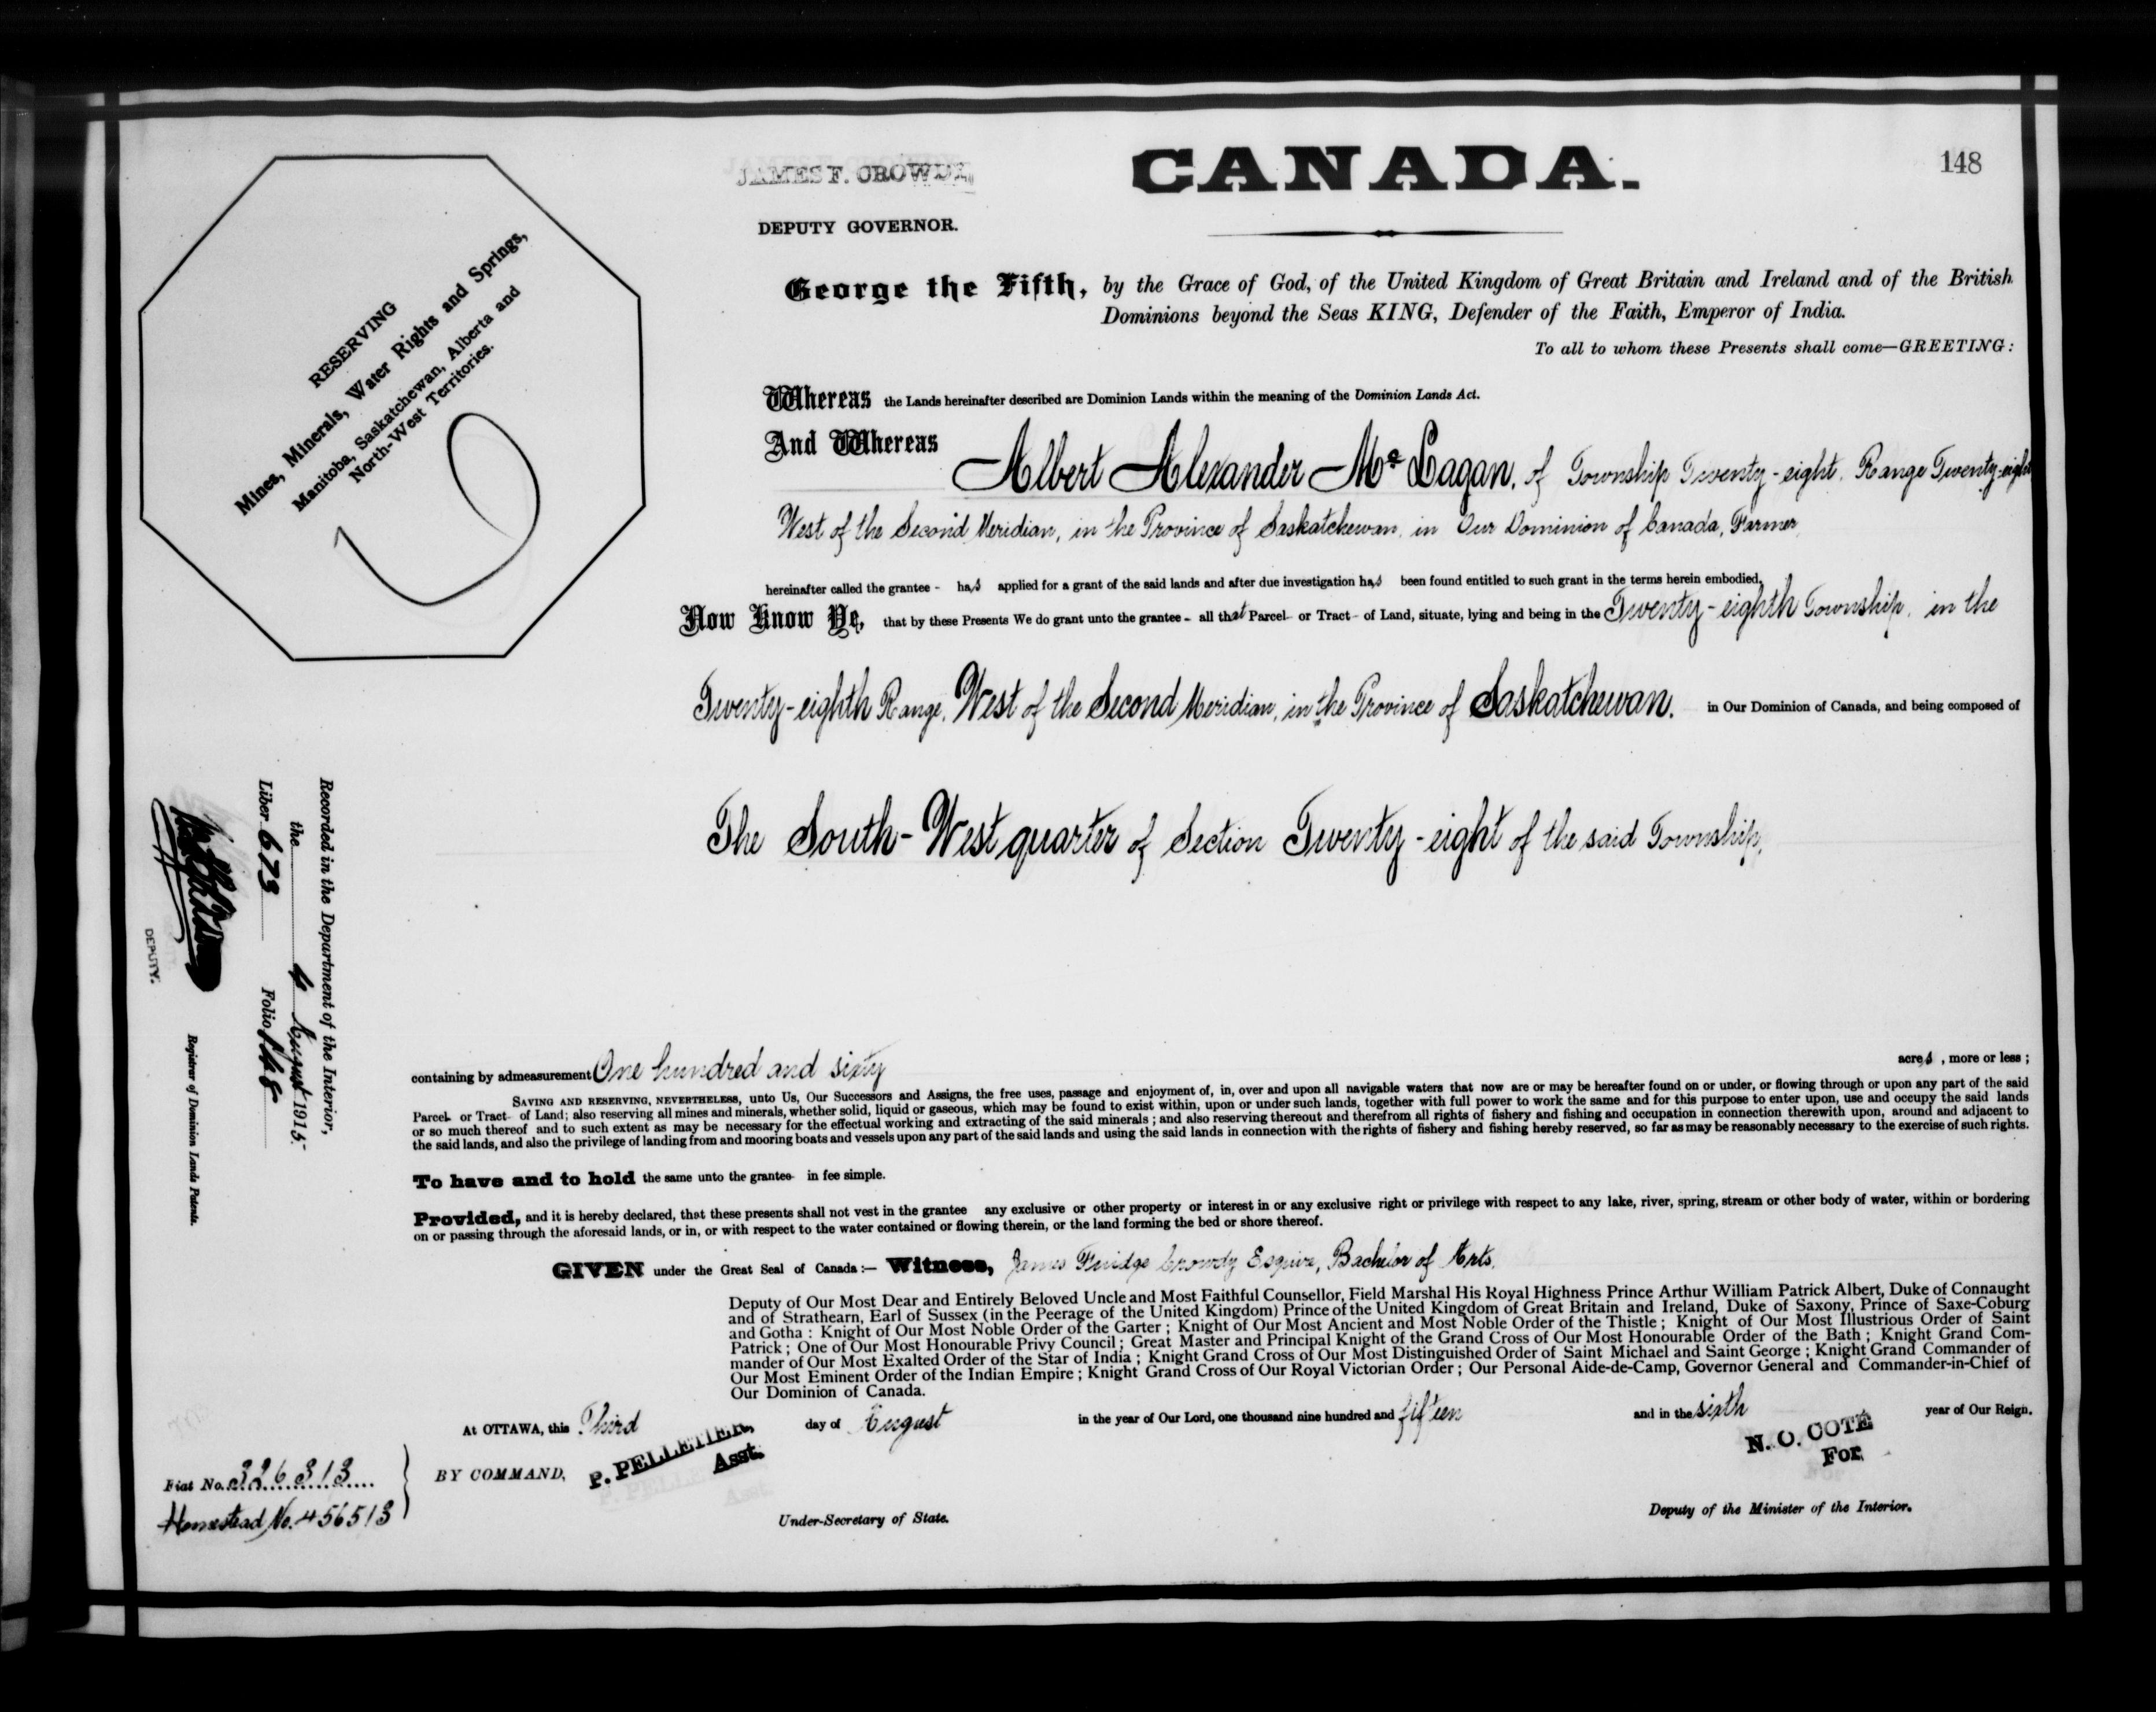 JAMES F. CROWDY,
DEPUTY GOVERNOR.
CANADA.
148
RESERVING
Mines, Minerals, Water Rights and Springs,
Manitoba, Saskatchewan, Alberta and
North-West Territories.
George the Fifth, by the Grace of God, of the United Kingdom of Great Britain and Ireland and of the British
Dominions beyond the Seas KING, Defender of the Faith, Emperor of India.
To all to whom these Presents shall come—GREETING:
Whereas the Lands hereinafter described are Dominion Lands within the meaning of the Dominion Lands Act.
And Whereas Albert Alexander McLagan, of Township Twenty-eight, Range Twenty-eight
West of the Second Meridian, in the Province of Saskatchewan, in Our Dominion of Canada, Farmer,
hereinafter called the grantee - has applied for a grant of the said lands and after due investigation has been found entitled to such grant in the terms herein embodied.
Now Know Ye, that by these Presents We do grant unto the grantee - all that Parcel - or Tract - of Land, situate, lying and being in the Twenty-eighth Township, in the
Twenty-eighth Range, West of the Second Meridian, in the Province of Saskatchewan. in Our Dominion of Canada, and being composed of
The South-West quarter of Section Twenty-eight of the said Township,
containing by admeasurement One hundred and sixty acres, more or less;
SAVING AND RESERVING, NEVERTHELESS, unto Us, Our Successors and Assigns, the free uses, passage and enjoyment of, in, over and upon all navigable waters that now are or may be hereafter found on or under, or flowing through or upon any part of the said
Parcel- or Tract- of Land; also reserving all mines and minerals, whether solid, liquid or gaseous, which may be found to exist within, upon or under such lands, together with full power to work the same and for this purpose to enter upon, use and occupy the said lands
or so much thereof and to such extent as may be necessary for the effectual working and extracting of the said minerals; and also reserving thereout and therefrom all rights of fishery and fishing and occupation in connection therewith upon, around and adjacent to
the said lands, and also the privilege of landing from and mooring boats and vessels upon any part of the said lands and using the said lands in connection with the rights of fishery and fishing hereby reserved, so far as may be reasonably necessary to the exercise of such rights.
To have and to hold the same unto the grantee- in fee simple.
Provided, and it is hereby declared, that these presents shall not vest in the grantee any exclusive or other property or interest in or any exclusive right or privilege with respect to any lake, river, spring, stream or other body of water, within or bordering
on or passing through the aforesaid lands, or in, or with respect to the water contained or flowing therein, or the land forming the bed or shore thereof.
GIVEN under the Great Seal of Canada:— Witness, James Fluidge Crowdy Esquire, Bachelor of Arts,
Deputy of Our Most Dear and Entirely Beloved Uncle and Most Faithful Counsellor, Field Marshal His Royal Highness Prince Arthur William Patrick Albert, Duke of Connaught
and of Strathearn, Earl of Sussex (in the Peerage of the United Kingdom) Prince of the United Kingdom of Great Britain and Ireland, Duke of Saxony, Prince of Saxe-Coburg
and Gotha: Knight of Our Most Noble Order of the Garter; Knight of Our Most Ancient and Most Noble Order of the Thistle; Knight of Our Most Illustrious Order of Saint
Patrick; One of Our Most Honourable Privy Council; Great Master and Principal Knight of the Grand Cross of Our Most Honourable Order of the Bath; Knight Grand Com-
mander of Our Most Exalted Order of the Star of India; Knight Grand Cross of Our Most Distinguished Order of Saint Michael and Saint George; Knight Grand Commander of
Our Most Eminent Order of the Indian Empire; Knight Grand Cross of Our Royal Victorian Order; Our Personal Aide-de-Camp, Governor General and Commander-in-Chief of
Our Dominion of Canada.
At OTTAWA, this Third day of August in the year of Our Lord, one thousand nine hundred and fifteen and in the sixth year of Our Reign.
BY COMMAND,
P. PELLETIER,
Asst.
Under-Secretary of State.
N. O. COTE
For
Deputy of the Minister of the Interior.
Fiat No. 326313
Homestead No. 456513
Recorded in the Department of the Interior,
the 4 August 1915.
Liber 673 Folio 148
DEPUTY.
Registrar of Dominion Lands Patents.